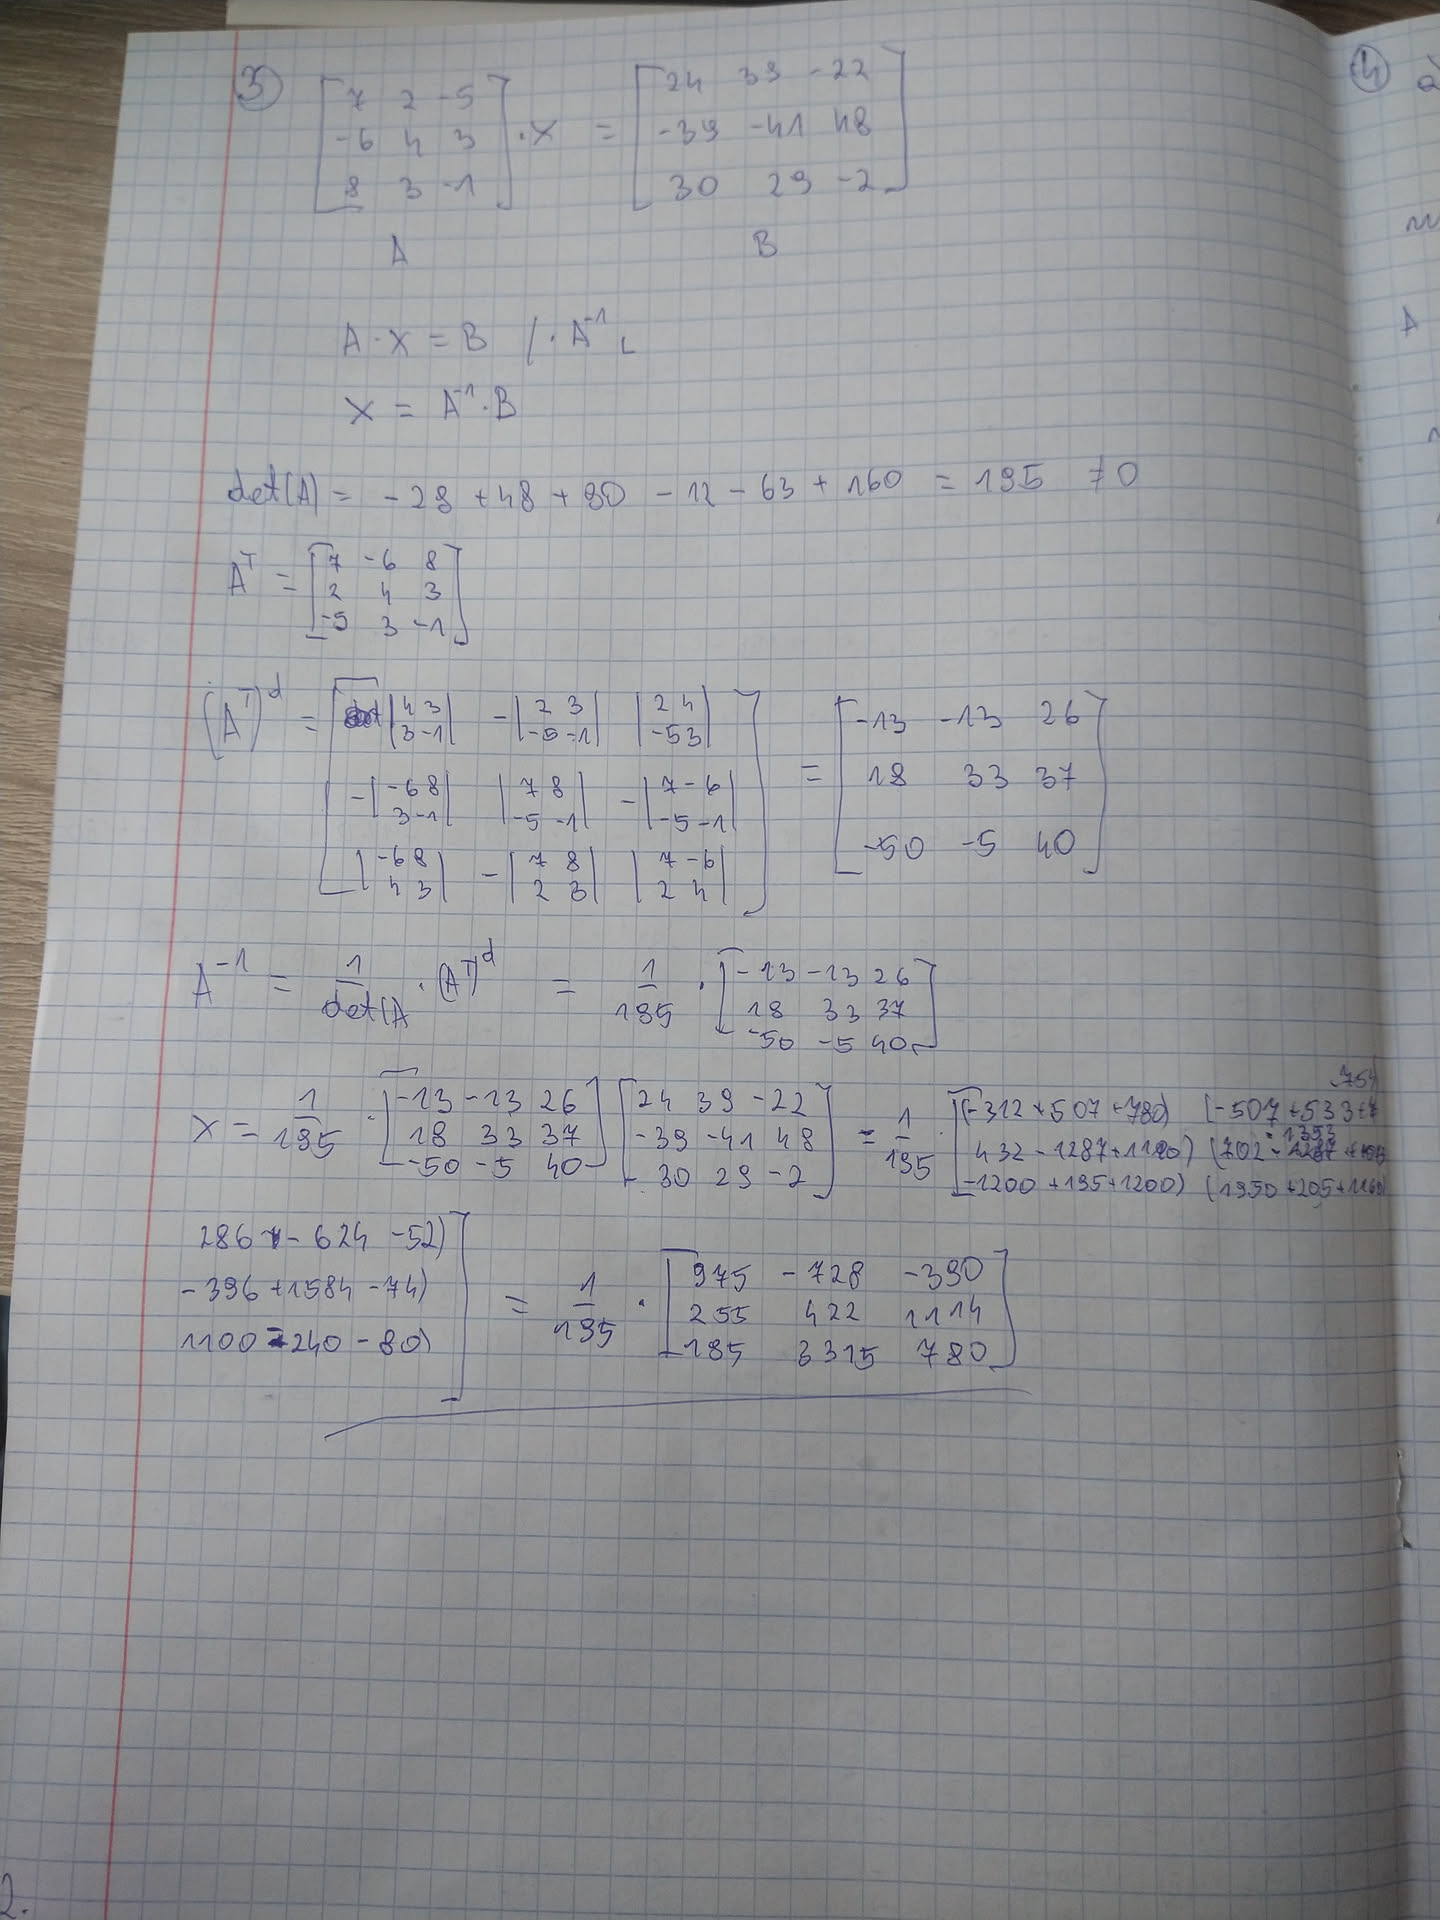 3) [7 2 -5; -6 4 3; 8 3 -1] · X = [24 39 -22; -39 -41 48; 30 29 -2]
A B
A · X = B /· A⁻¹ L
X = A⁻¹ · B
det(A) = -28 + 48 + 90 - 12 - 63 + 160 = 195 ≠ 0
Aᵀ = [7 -6 8; 2 4 3; -5 3 -1]
(Aᵀ)ᵈ = [|4 3; 3 -1| -|2 3; -5 -1| |2 4; -5 3|; -|-6 8; 3 -1| |7 8; -5 -1| -|7 -6; -5 -1|; |-6 8; 4 3| -|7 8; 2 3| |7 -6; 2 4|] = [-13 -13 26; 18 33 37; -50 -5 40]
A⁻¹ = 1/det(A · (Aᵀ)ᵈ = 1/195 · [-13 -13 26; 18 33 37; -50 -5 40]
X = 1/195 · [-13 -13 26; 18 33 37; -50 -5 40] [24 39 -22; -39 -41 48; 30 29 -2] = 1/195 · [(-312 + 507 + 780) (-507 + 533 + 754; 432 - 1287 + 1110) (702 - 1353; -1200 + 195 + 1200) (1950 + 205 + 1160)
286 - 624 - 52)
-396 + 1584 - 74)
1100 - 240 - 80)] = 1/195 · [975 -728 -390; 255 422 1114; 195 3315 780]
4) a
A
2.